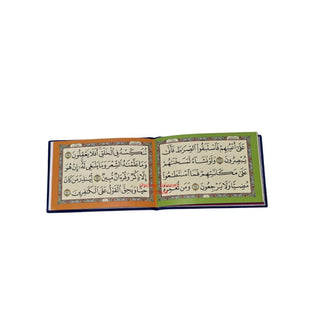 عَلَىٰ أَعْيُنِهِمْ فَاسْتَبَقُوا الصِّرَاطَ فَأَنَّىٰ
يُبْصِرُونَ ۝ وَلَوْ نَشَاءُ لَمَسَخْنَاهُمْ
عَلَىٰ مَكَانَتِهِمْ فَمَا اسْتَطَاعُوا
مُضِيًّا وَلَا يَرْجِعُونَ ۝ وَمَنْ نُعَمِّرْهُ
نُنَكِّسْهُ فِي الْخَلْقِ أَفَلَا يَعْقِلُونَ ۝
وَمَا عَلَّمْنَاهُ الشِّعْرَ وَمَا يَنْبَغِي لَهُ إِنْ هُوَ
إِلَّا ذِكْرٌ وَقُرْآنٌ مُبِينٌ ۝ لِيُنْذِرَ مَنْ كَانَ
حَيًّا وَيَحِقَّ الْقَوْلُ عَلَى الْكَافِرِينَ ۝